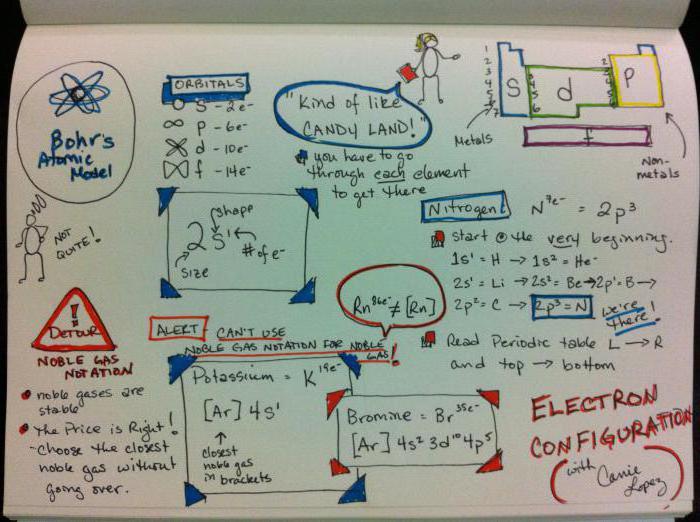 Bohr's
Atomic
Model
NOT
QUITE!
ORBITALS
S - 2e-
P - 6e-
d - 10e-
f - 14e-
shape
2s¹
size
# of e-
"Kind of like
CANDY LAND!"
you have to go
through each element
to get there
1
2
3
4
5
6
7
S
d
P
f
Metals
Non-
metals
Nitrogen N⁷ᵉ⁻ = 2p³
Start @ the very beginning.
1s¹ = H → 1s² = He
2s¹ = Li → 2s² = Be → 2p¹ = B →
2p² = C → 2p³ = N
We're
there!
Read Periodic table L → R
and top → bottom
DETOUR
NOBLE GAS
NOTATION
noble gases are
stable
The Price is Right!
- Choose the closest
noble gas without
going over.
ALERT CAN'T USE
NOBLE GAS NOTATION FOR NOBLE
GAS!
Rn⁸⁶ᵉ⁻ ≠ [Rn]
Potassium = K¹⁹ᵉ⁻
[Ar] 4s¹
closest
noble gas
in brackets
Bromine = Br³⁵ᵉ⁻
[Ar] 4s² 3d¹⁰ 4p⁵
ELECTRON
CONFIGURATION
with Carrie
Lopez